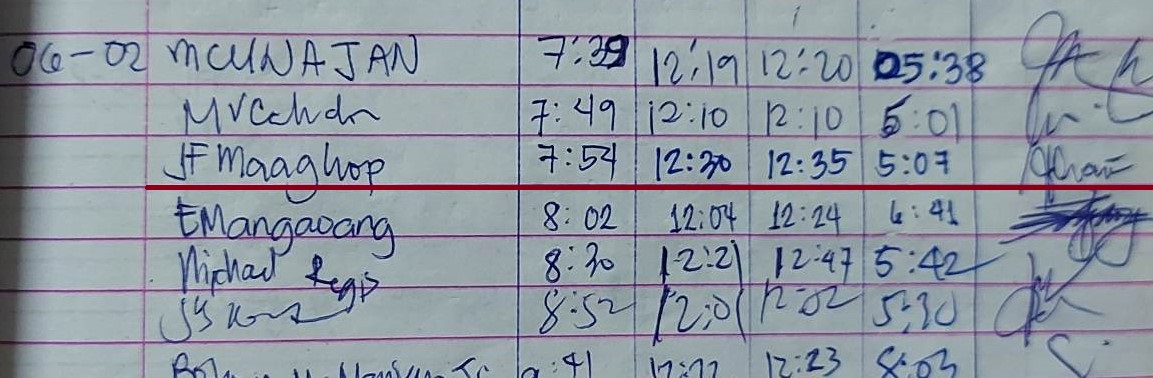 06-02 MCUNAJAN 7:39 12:19 12:20 05:38
MVCahdn 7:49 12:10 12:10 5:01
JF Maaghop 7:54 12:30 12:35 5:07
EMangaoang 8:02 12:04 12:24 6:41
Michael Regis 8:30 12:21 12:47 5:42
8:52 12:01 12:02 5:30
:41 12:23 8:03